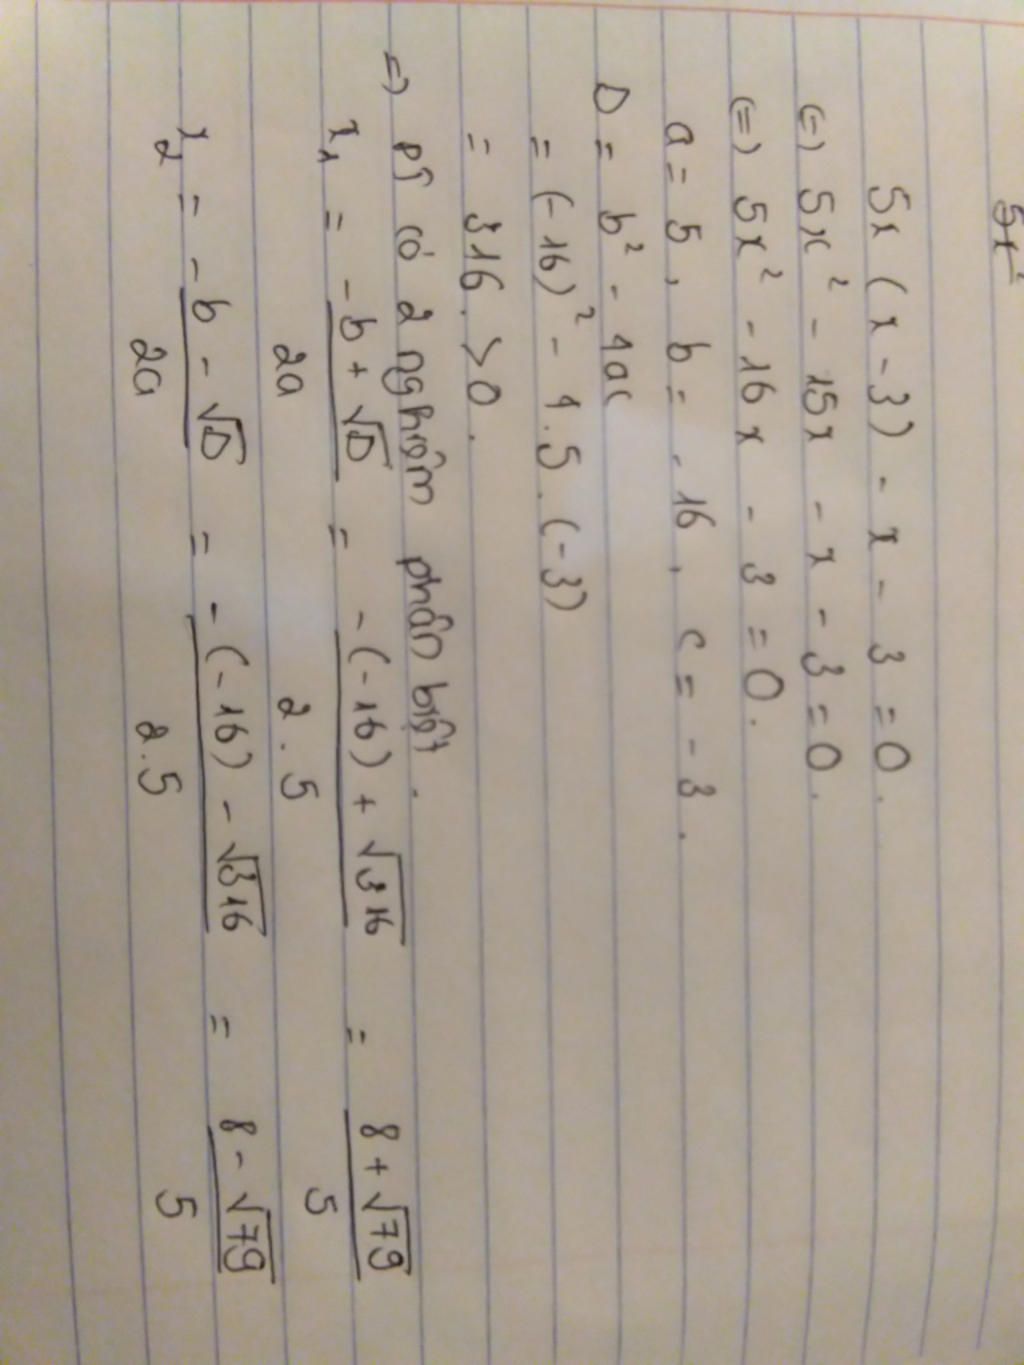 5x²
5x (x - 3) - x - 3 = 0.
(=) 5x² - 15x - x - 3 = 0.
(=) 5x² - 16x - 3 = 0.
a = 5, b = -16, c = -3.
Δ = b² - 4ac
= (-16)² - 4.5.(-3)
= 316 > 0.
=) pt có 2 nghiệm phân biệt.
x₁ = (-b + √Δ)/2a = (-(-16) + √316)/2.5 = (8 + √79)/5
x₂ = (-b - √Δ)/2a = (-(-16) - √316)/2.5 = (8 - √79)/5